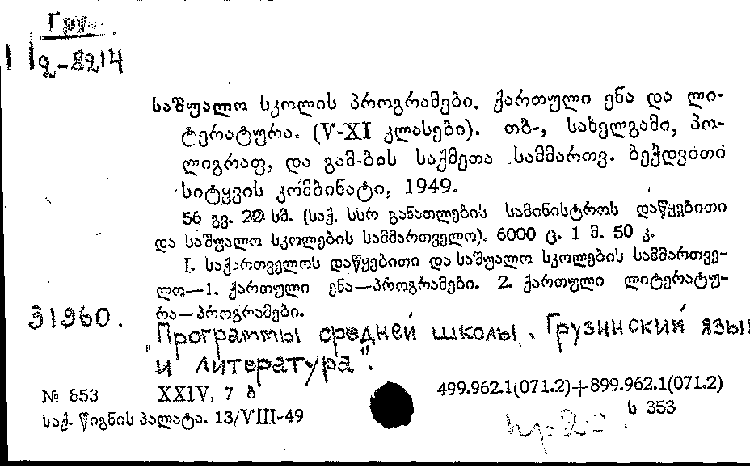 Гру
2-8214
საშუალო სკოლის პროგრამები. ქართული ენა და ლი-
ტერატურა. (V-XI კლასები). თბ., სახელგამი, პო-
ლიგრაფ. და გამ-ბის საქმეთა სამმართვ. ბეჭდვითი
სიტყვის კომბინატი, 1949.
56 გვ. 20 სმ. (საქ. სსრ განათლების სამინისტროს დაწყებითი
და საშუალო სკოლების სამმართველო). 6000 ც. 1 მ. 50 კ.
I. საქართველოს დაწყებითი და საშუალო სკოლების სამმართვე-
ლო—1. ქართული ენა—პროგრამები. 2. ქართული ლიტერატუ-
რა—პროგრამები.
31960.
"Программы средней школы. Грузинский язык
и литература".
№ 853 XXIV, 7 ბ 499.962.1(071.2)+899.962.1(071.2)
საქ. წიგნის პალატა. 13/VIII-49 ს 353